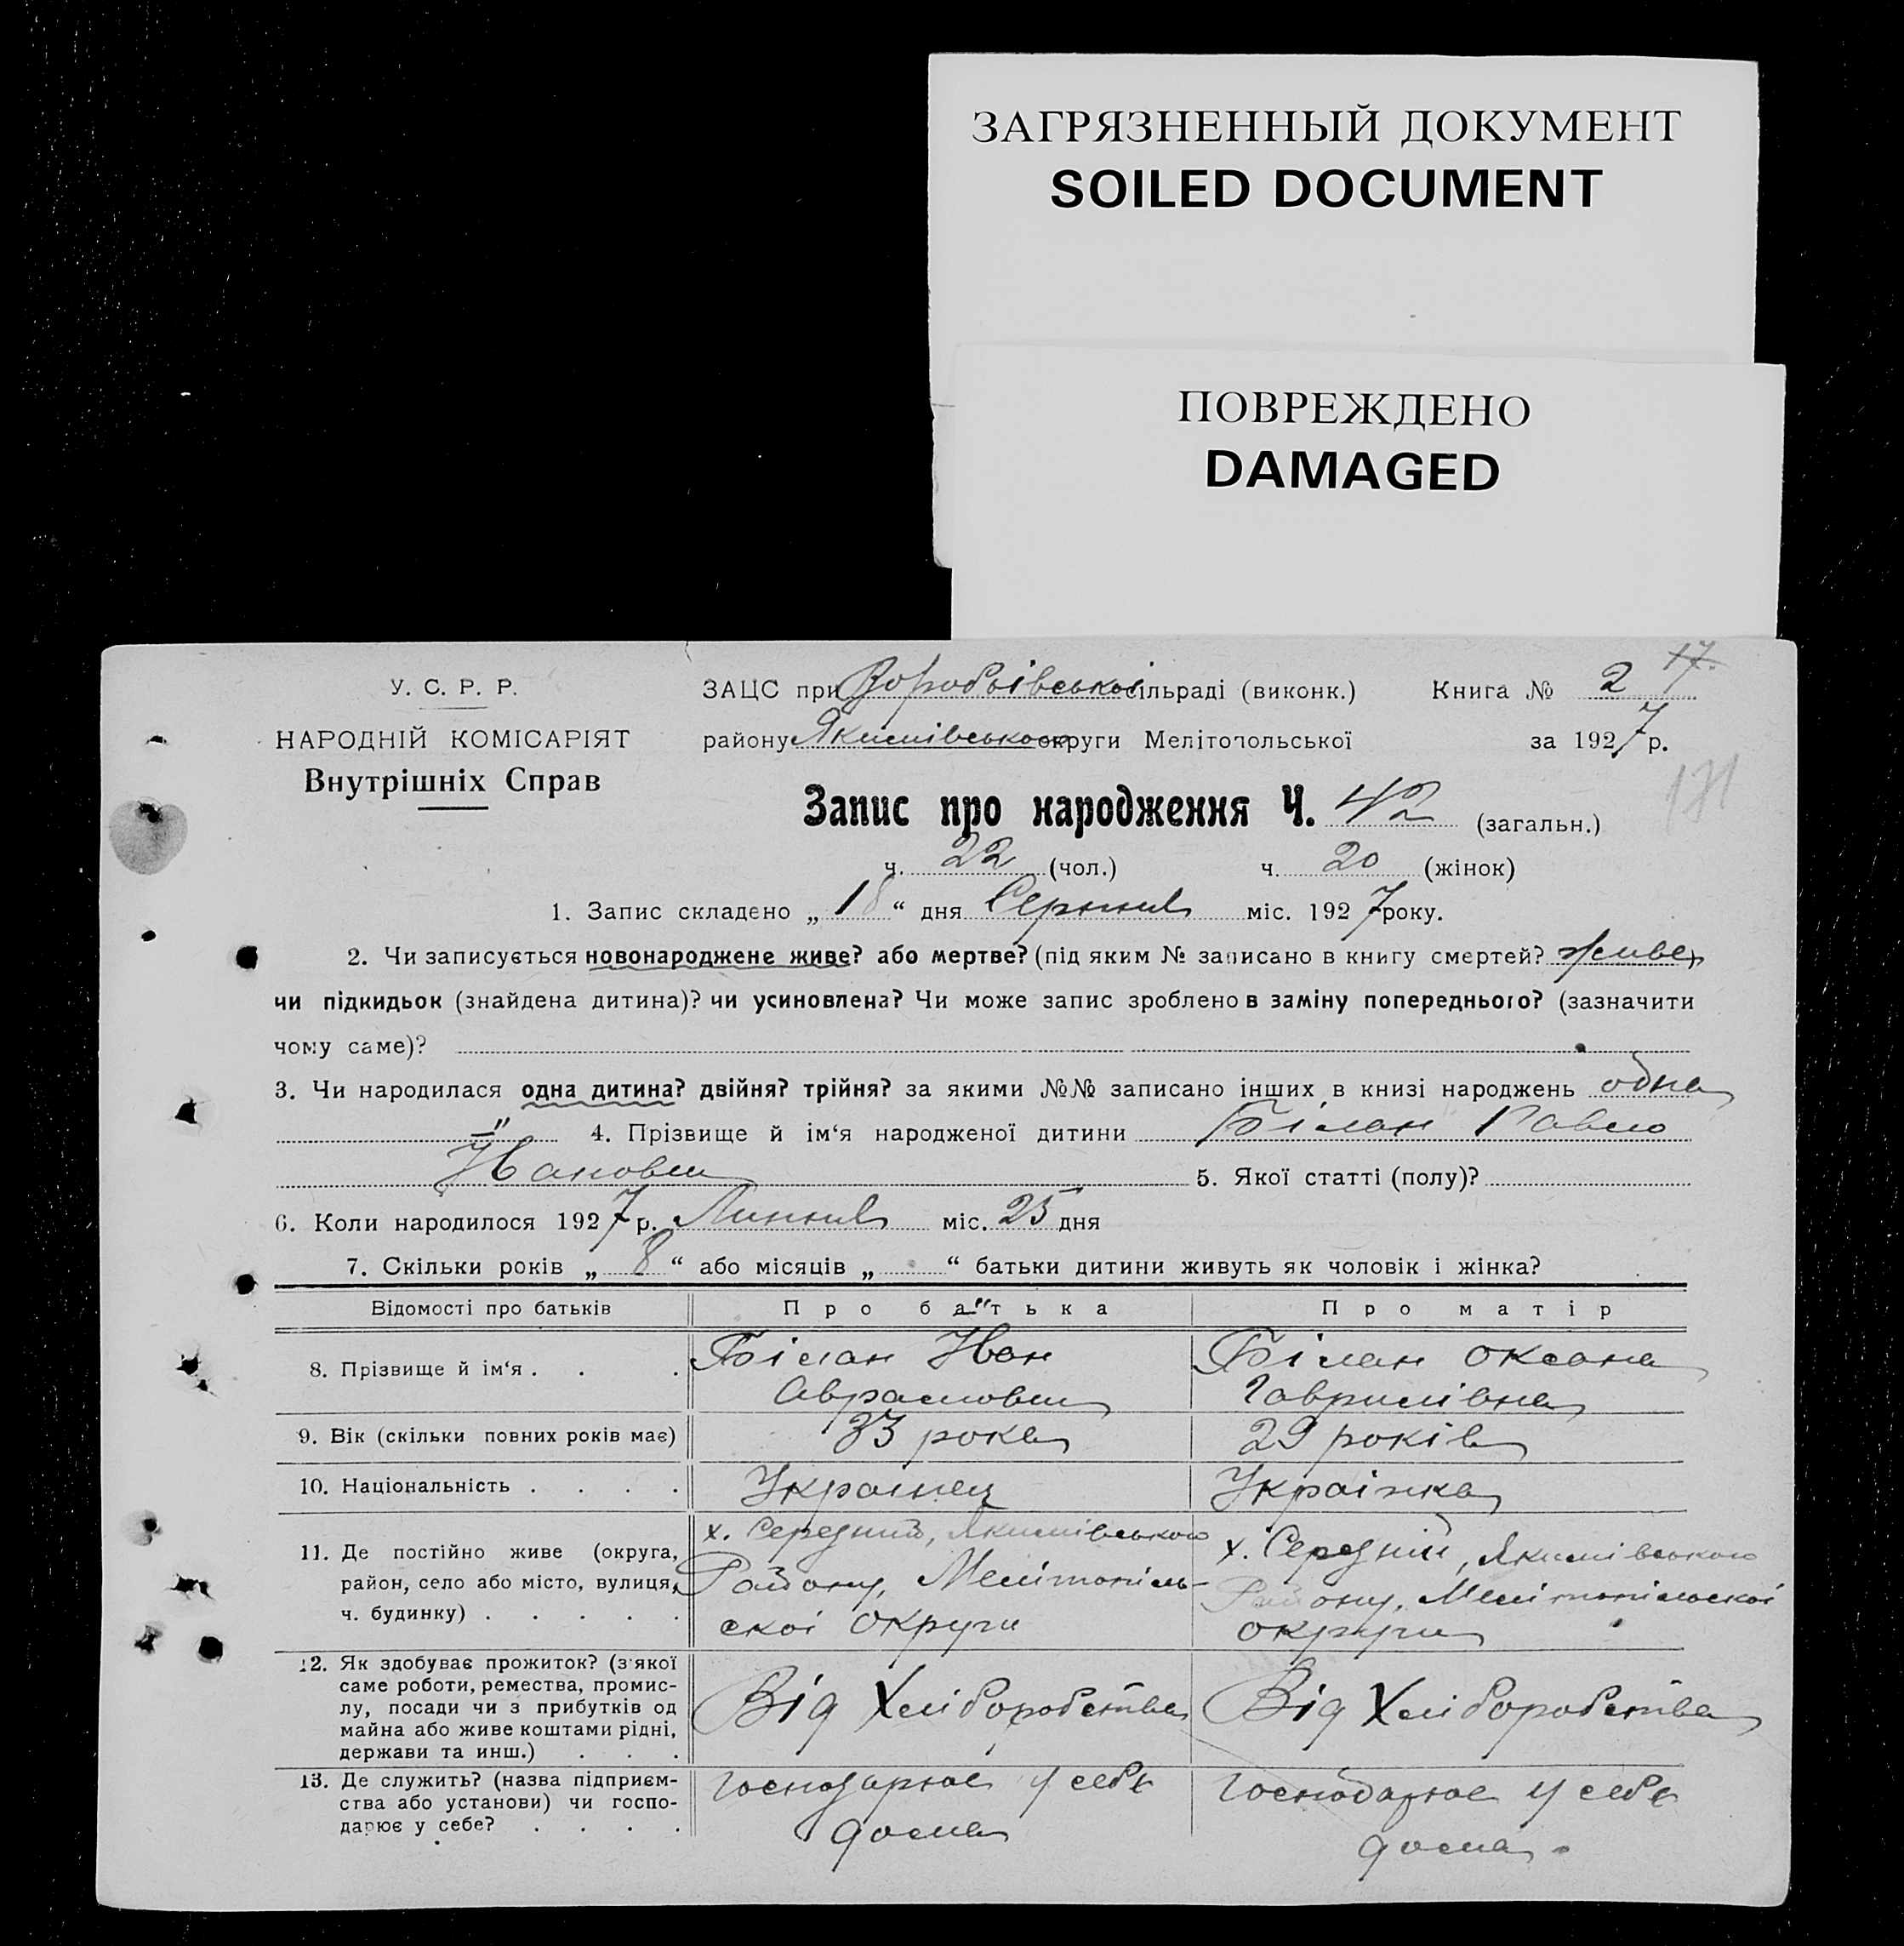 ЗАГРЯЗНЕННЫЙ ДОКУМЕНТ
SOILED DOCUMENT
ПОВРЕЖДЕНО
DAMAGED
17.
У. С. Р. Р.
ЗАЦС при Воробьівської сільраді (виконк.) Книга № 2
НАРОДНІЙ КОМІСАРІЯТ
району Якимівського округи Мелітопольської за 1927 р.
Внутрішніх Справ
171
Запис про народження Ч. 42 (загальн.)
ч. 22 (чол.) ч. 20 (жінок)
1. Запис складено „ 18 “ дня Серпня міс. 1927 року.
2. Чи записується новонароджене живе? або мертве? (під яким № записано в книгу смертей? живе,
чи підкидьок (знайдена дитина)? чи усиновлена? Чи може запис зроблено в заміну попереднього? (зазначити
чому саме)?
3. Чи народилася одна дитина? двійня? трійня? за якими №№ записано інших в книзі народжень одна
–"– 4. Прізвище й ім‘я народженої дитини Білан Павло
Иванович 5. Якої статті (полу)?
6. Коли народилося 1927 р. Липня міс. 25 дня
7. Скільки років „ 8 “ або місяців „ “ батьки дитини живуть як чоловік і жінка?
Відомості про батьків Про батька Про матір
8. Прізвище й ім‘я . . . Білан Иван Білан Оксана
Аврамович Гаврилівна
9. Вік (скільки повних років має) 33 рока 29 років
10. Національність . . . . Украінец Украінка
11. Де постійно живе (округа, х. Середний, Якимівського х. Середний, Якимівського
район, село або місто, вулиця, Району, Мелітопіль- Району, Мелітопільскоі
ч. будинку) . . . . . скоі Округи округи
12. Як здобуває прожиток? (з якої
саме роботи, ремества, промис-
лу, посади чи з прибутків од Від Хліборобства Від Хліборобства
майна або живе коштами рідні,
держави та инш.) . . .
13. Де служить? (назва підприєм- Господарює у себе Господарює у себе
ства або установи) чи госпо- дома дома.
дарює у себе? . . . .